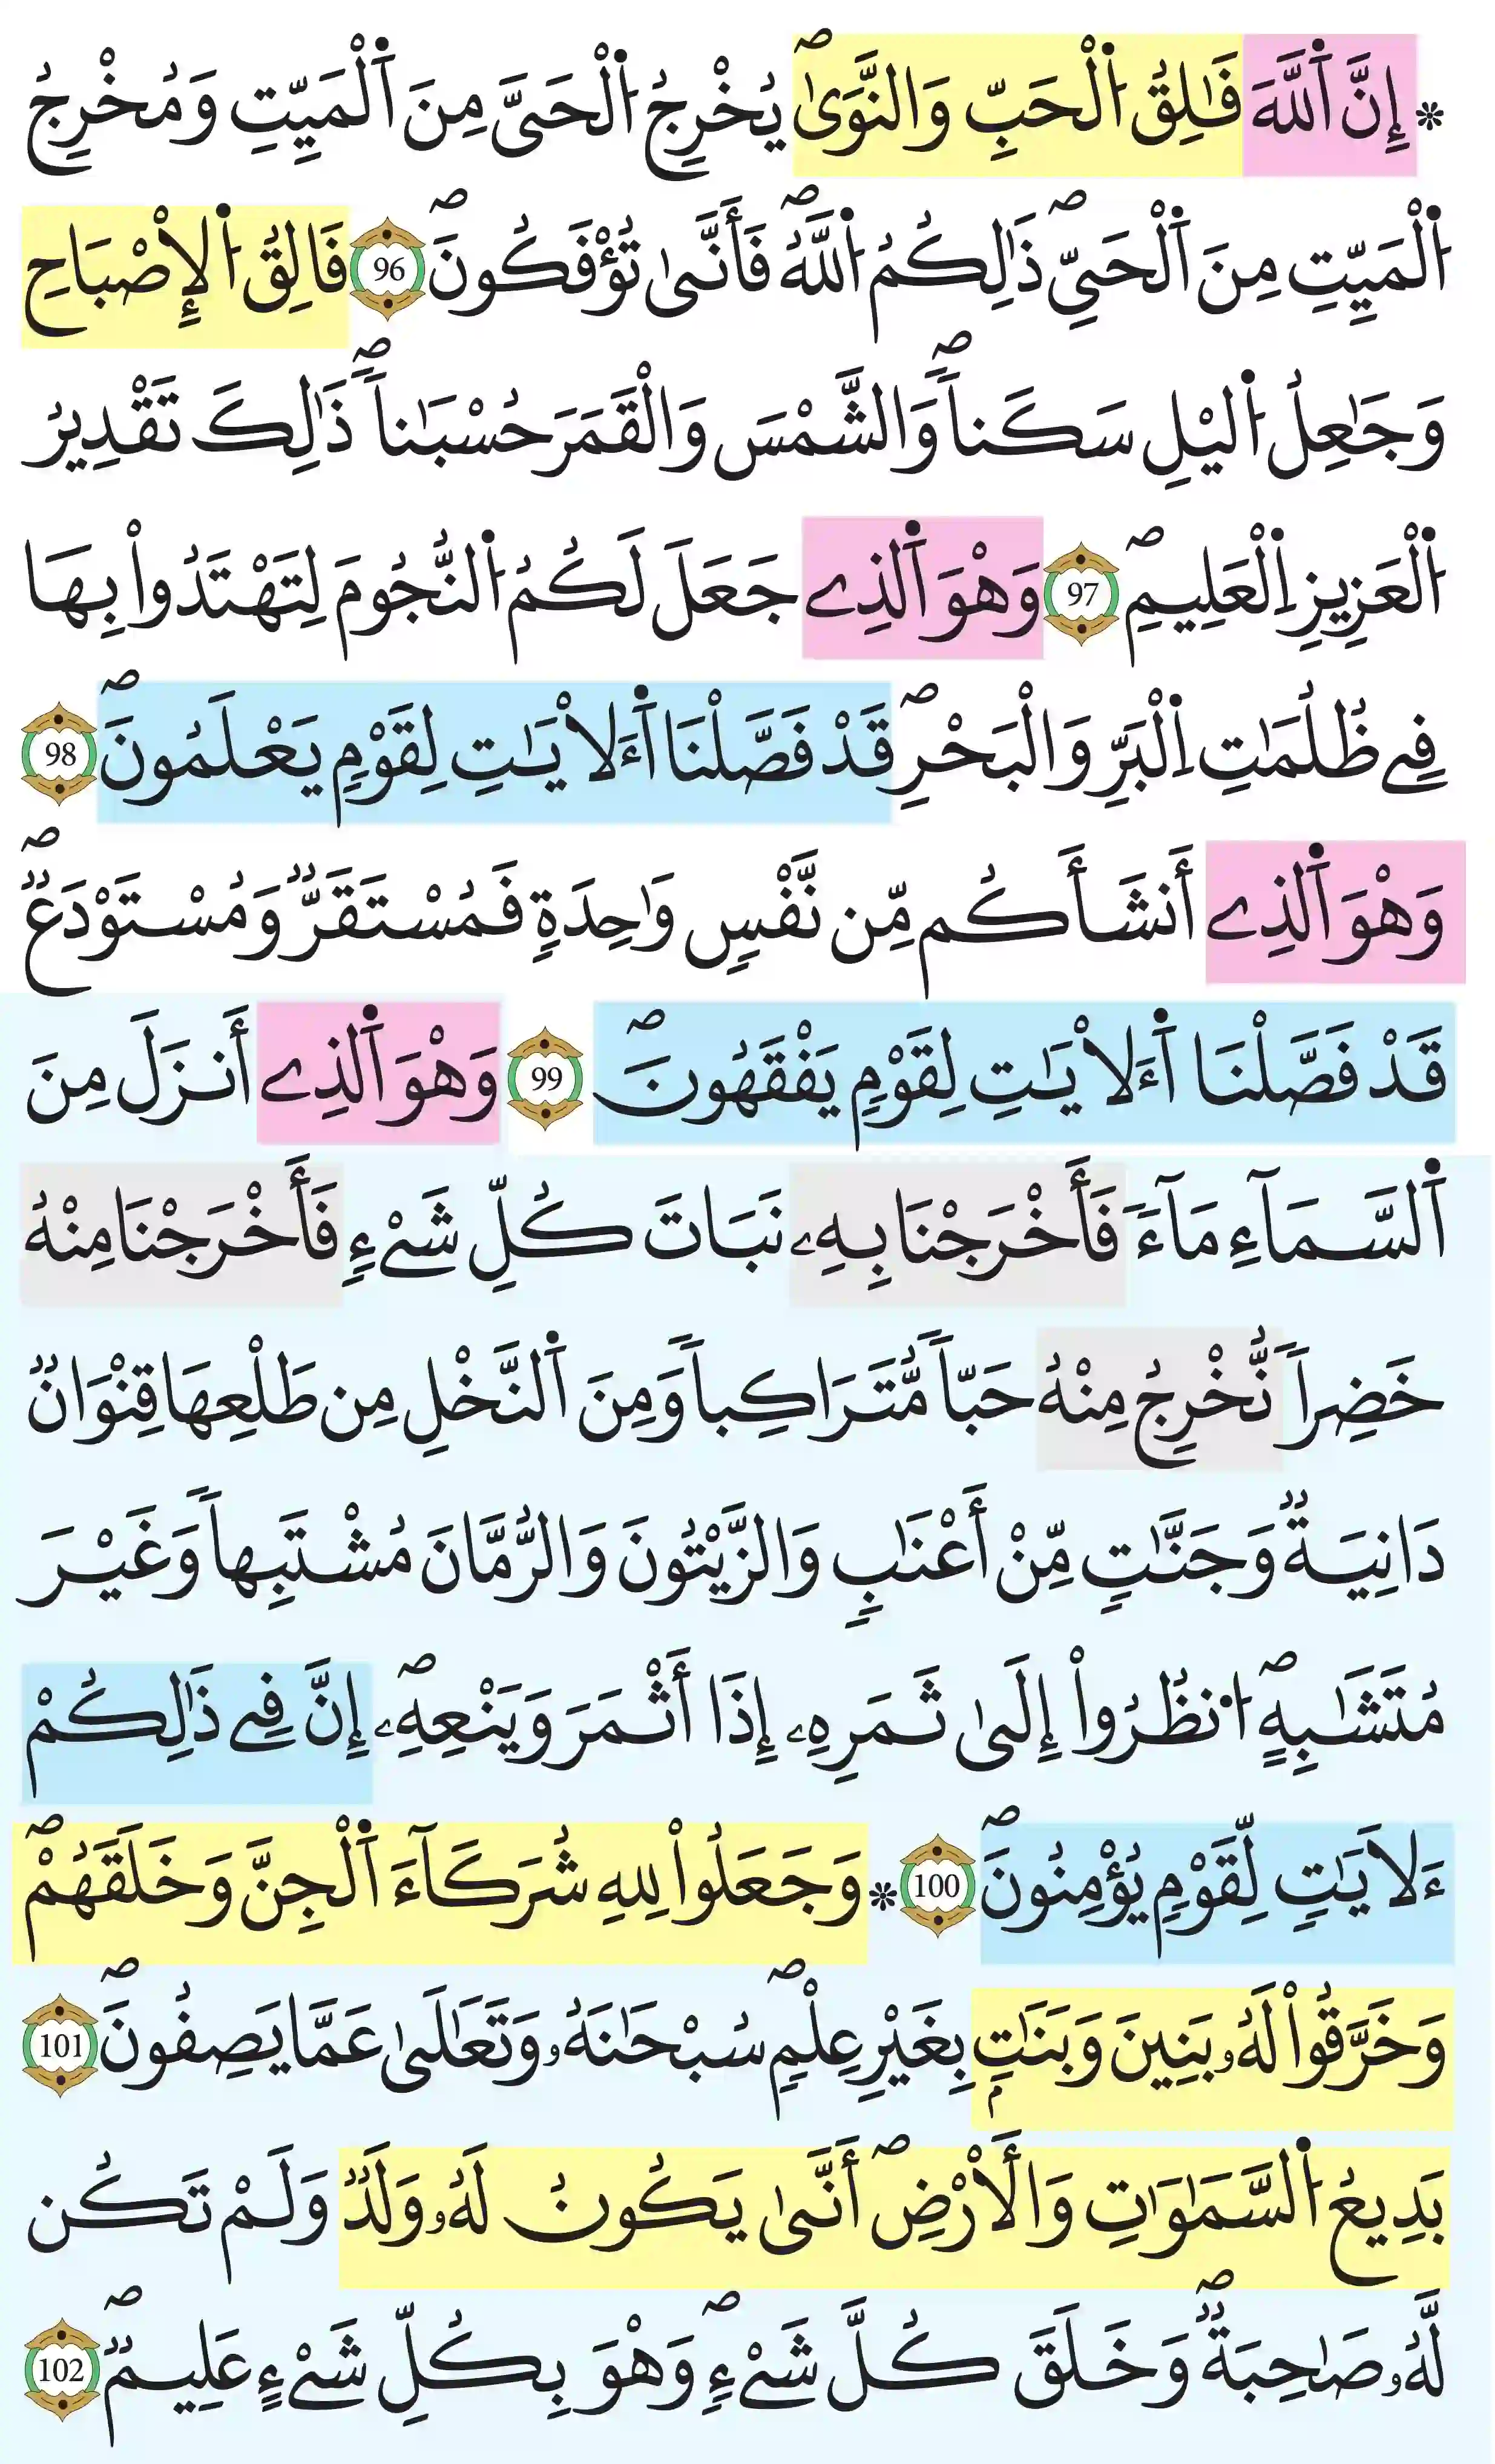 * إِنَّ اَ۬للَّهَ فَٰلِقُ اُ۬لْحَبِّ وَالنَّو۪يٰۖ يُخْرِجُ اُ۬لْحَىَّ مِنَ اَ۬لْمَيِّتِ وَمُخْرِجُ
اُ۬لْمَيِّتِ مِنَ اَ۬لْحَيِّۖ ذَٰلِكُمُ اُ۬للَّهُۖ فَأَنَّىٰ تُؤْفَكُونَۖ 96 فَالِقُ اُ۬لْإِصْبَاحِ
وَجَٰعِلُ اُ۬ليْلِ سَكَناٗۖ وَالشَّمْسَ وَالْقَمَرَ حُسْبَٰناٗۖ ذَٰلِكَ تَقْدِيرُ
اُ۬لْعَزِيزِ اِ۬لْعَلِيمِۖ 97 وَهْوَ اَ۬لذِے جَعَلَ لَكُمُ اُ۬لنُّجُومَ لِتَهْتَدُواْ بِهَا
فِے ظُلُمَٰتِ اِ۬لْبَرِّ وَالْبَحْرِۖ قَدْ فَصَّلْنَا اَ۬ءَلَايَٰتِ لِقَوْمٖ يَعْلَمُونَۖ 98
وَهْوَ اَ۬لذِے أَنشَأَكُم مِّن نَّفْسٖ وَٰحِدَةٖ فَمُسْتَقَرّٞ وَمُسْتَوْدَعٞۖ
قَدْ فَصَّلْنَا اَ۬ءَلَايَٰتِ لِقَوْمٖ يَفْقَهُونَۖ 99 وَهْوَ اَ۬لذِے أَنزَلَ مِنَ
اَ۬لسَّمَآءِ مَآءٗ فَأَخْرَجْنَا بِهِۦ نَبَاتَ كُلِّ شَےْءٖ فَأَخْرَجْنَا مِنْهُ
خَضِراٗ نُّخْرِجُ مِنْهُ حَبّاٗ مُّتَرَاكِباٗ وَمِنَ اَ۬لنَّخْلِ مِن طَلْعِهَا قِنْوَانٞ
دَانِيَةٞ وَجَنَّٰتٖ مِّنْ أَعْنَٰبٖ وَالزَّيْتُونَ وَالرُّمَّانَ مُشْتَبِهاٗ وَغَيْرَ
مُتَشَٰبِهٍۖ اُ۟نظُرُواْ إِلَىٰ ثَمَرِهِۦ إِذَا أَثْمَرَ وَيَنْعِهِۦۖ إِنَّ فِے ذَٰلِكُمْ
ءَلَايَٰتٖ لِّقَوْمٖ يُؤْمِنُونَۖ 100 * وَجَعَلُواْ لِلهِ شُرَكَآءَ اَ۬لْجِنَّ وَخَلَقَهُمْۖ
وَخَرَّقُواْ لَهُۥ بَنِينَ وَبَنَٰتِۢ بِغَيْرِ عِلْمٖۖ سُبْحَٰنَهُۥ وَتَعَٰلَىٰ عَمَّا يَصِفُونَۖ 101
بَدِيعُ اُ۬لسَّمَٰوَٰتِ وَالْأَرْضِۖ أَنَّىٰ يَكُونُ لَهُۥ وَلَدٞ وَلَمْ تَكُن
لَّهُۥ صَٰحِبَةٞۖ وَخَلَقَ كُلَّ شَےْءٖۖ وَهْوَ بِكُلِّ شَےْءٍ عَلِيمٞۖ 102